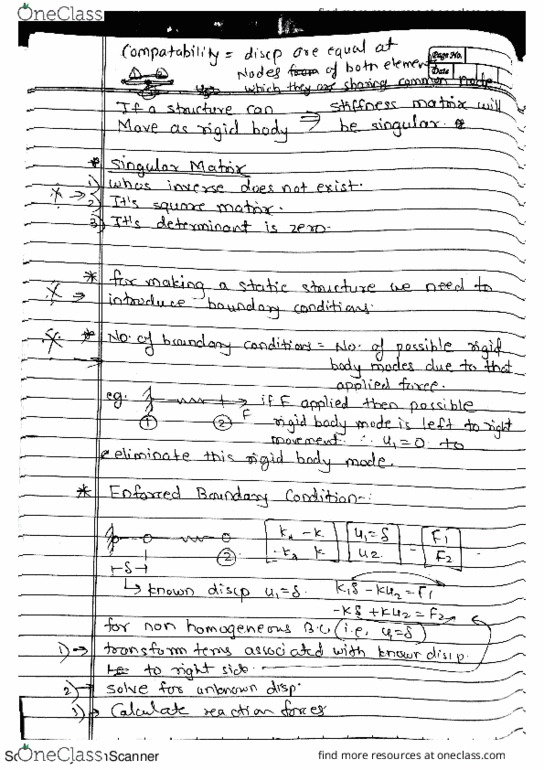 OneClass
find more resources at oneclass.com
Compatability = discp are equal at
Nodes from of both element
which they are sharing common node
Page No.
Date
If a structure can ⇒ stiffness matrix will
Move as rigid body be singular.
* Singular Matrix
1) whos inverse does not exist.
2) It's square matrix.
3) It's determinant is zero.
* for making a static structure we need to
⇒ introduce boundary conditions.
* No. of boundary conditions = No. of possible rigid
body modes due to that
applied force.
eg. if F applied then possible
1 2 F rigid body mode is left to right
movement ∴ u1 = 0 to
eliminate this rigid body mode.
* Enforced Boundary Condition:
[k -k] [u1=δ] = [F1]
2 [-k k] [u2] [F2]
δ
↳ known discp u1=δ. k1δ - ku2 = F1
-kδ + ku2 = F2
for non homogeneous B.C (i.e, u=δ)
1) → transform terms associated with known disp.
to right side.
2) → solve for unknown disp.
3) → Calculate reaction forces
OneClass
Scanner
find more resources at oneclass.com